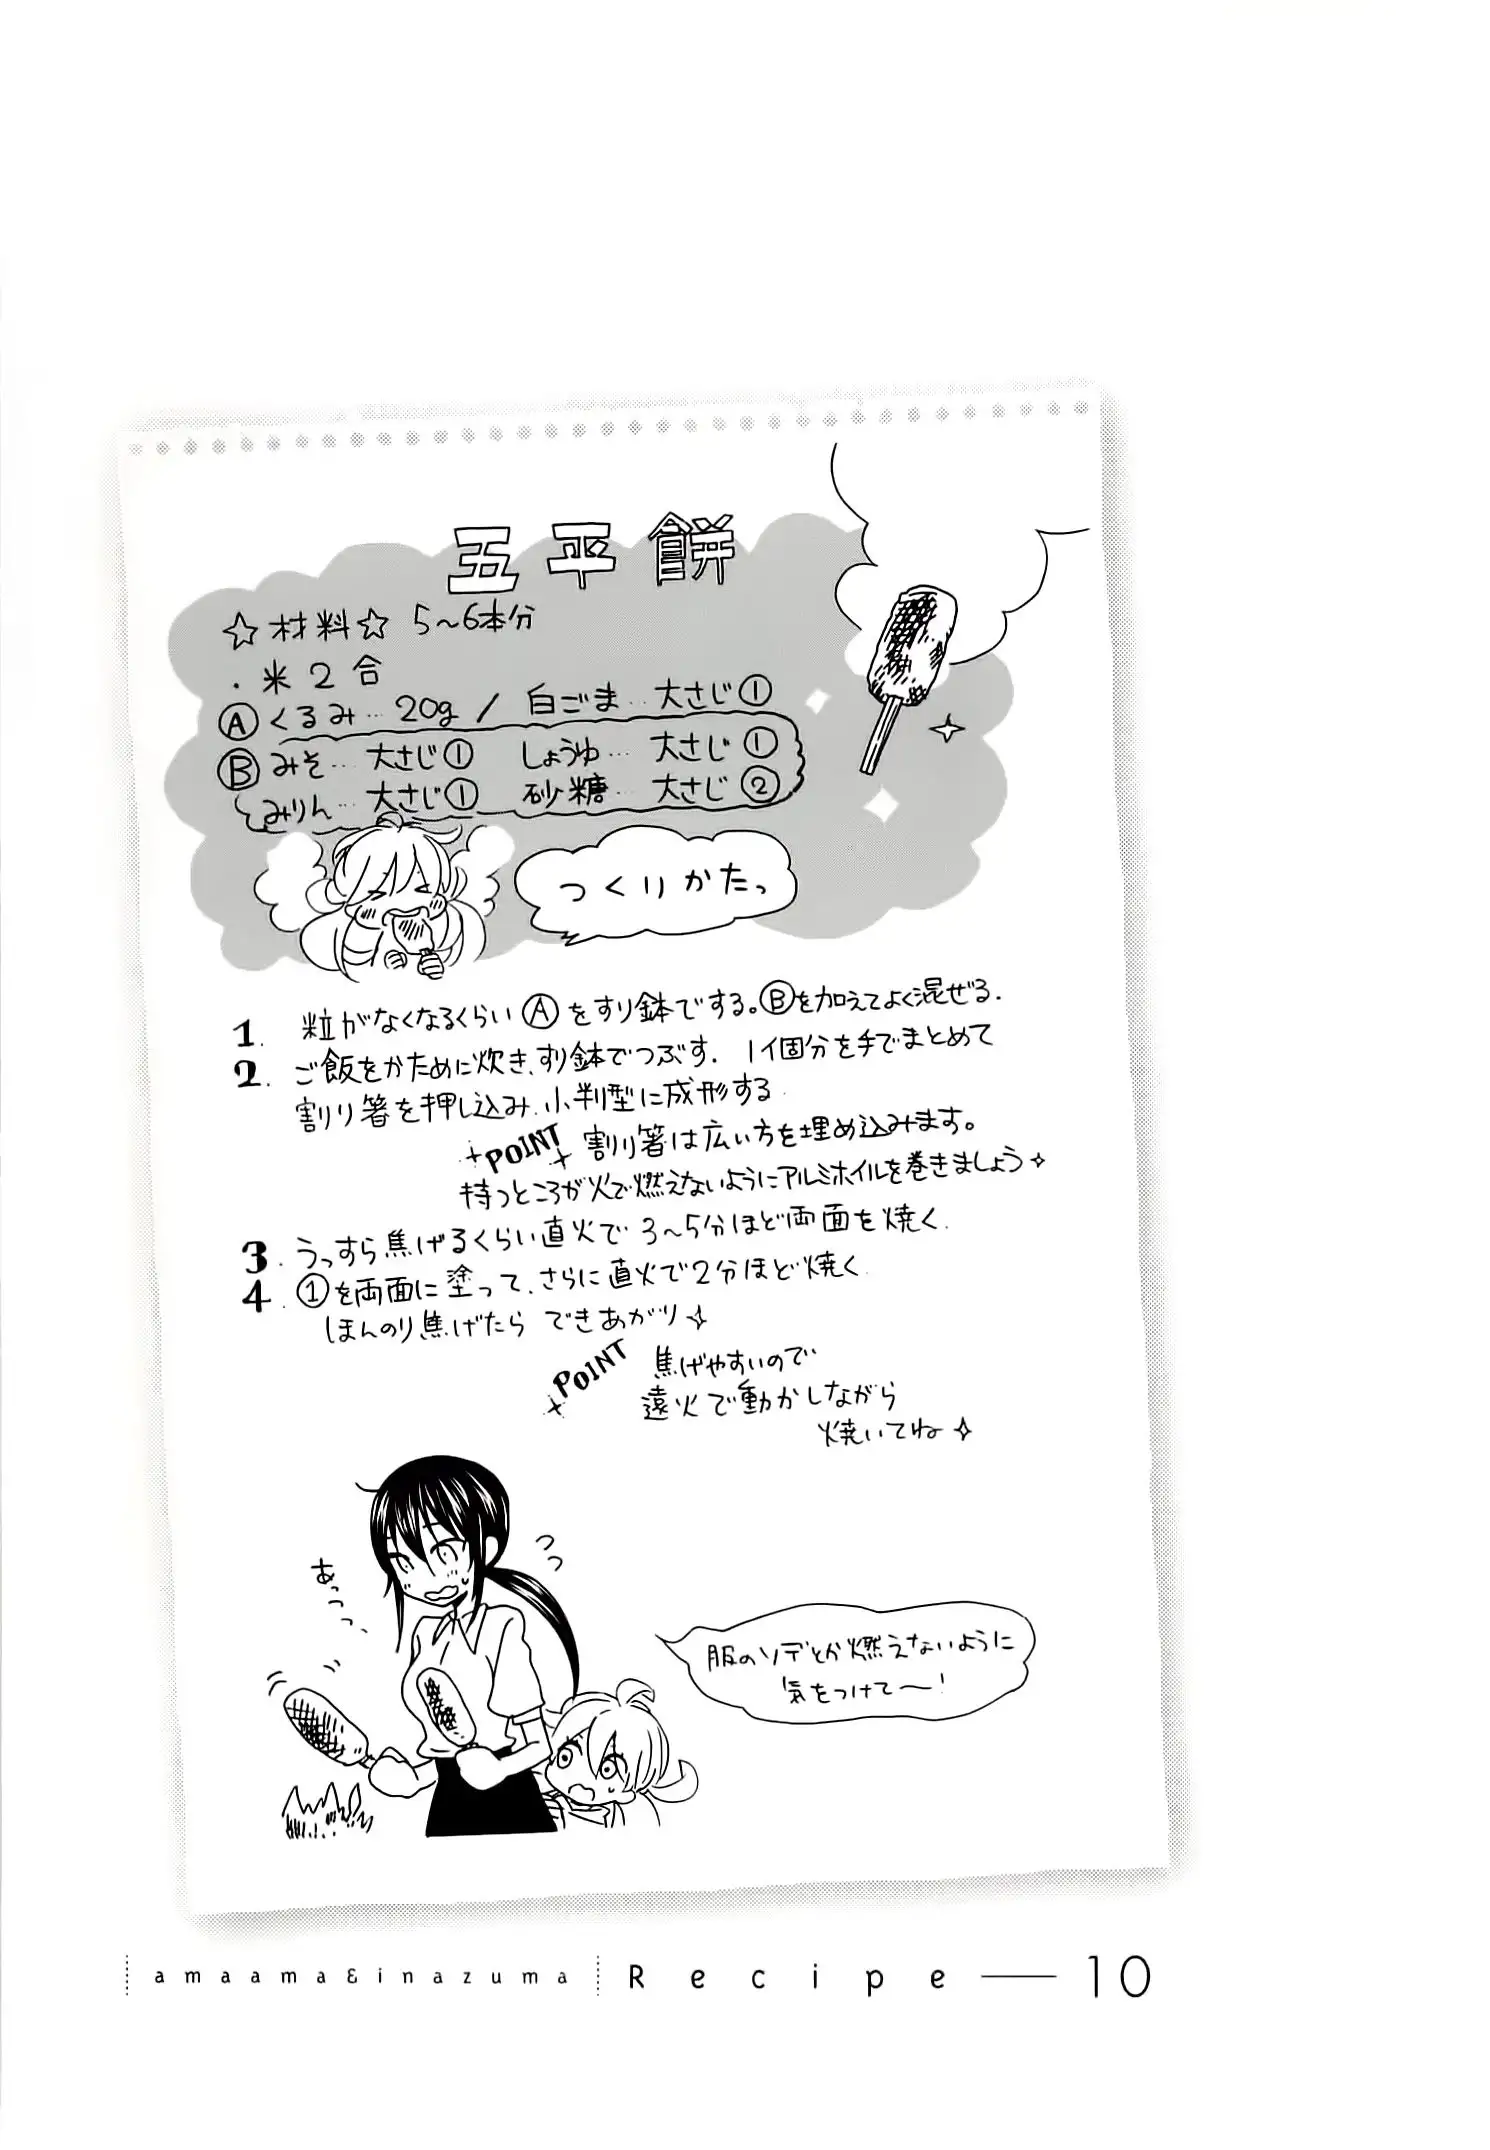 五平餅
☆材料☆ 5〜6本分
・米2合
Ⓐくるみ…20g / 白ごま…大さじ①
Ⓑみそ…大さじ① しょうゆ…大さじ①
みりん…大さじ① 砂糖…大さじ②
つくりかたっ
1. 粒がなくなるくらいⒶをすり鉢でする。Ⓑを加えてよく混ぜる.
2. ご飯をかために炊き、すり鉢でつぶす. 1イ固分を手でまとめて
割り箸を押し込み、小判型に成形する.
POINT 割り箸は広い方を埋め込みます。
持つところが火で燃えないようにアルミホイルを巻きましょう✧
3. うっすら焦げるくらい直火で3〜5分ほど両面を焼く.
4. ①を両面に塗って、さらに直火で2分ほど焼く.
ほんのり焦げたら できあがり✧
POINT 焦げやすいので
遠火で動かしながら
焼いてね✧
あっっっ
っっ
服のソデとか燃えないように
気をつけて〜!
amaama&inazuma Recipe — 10